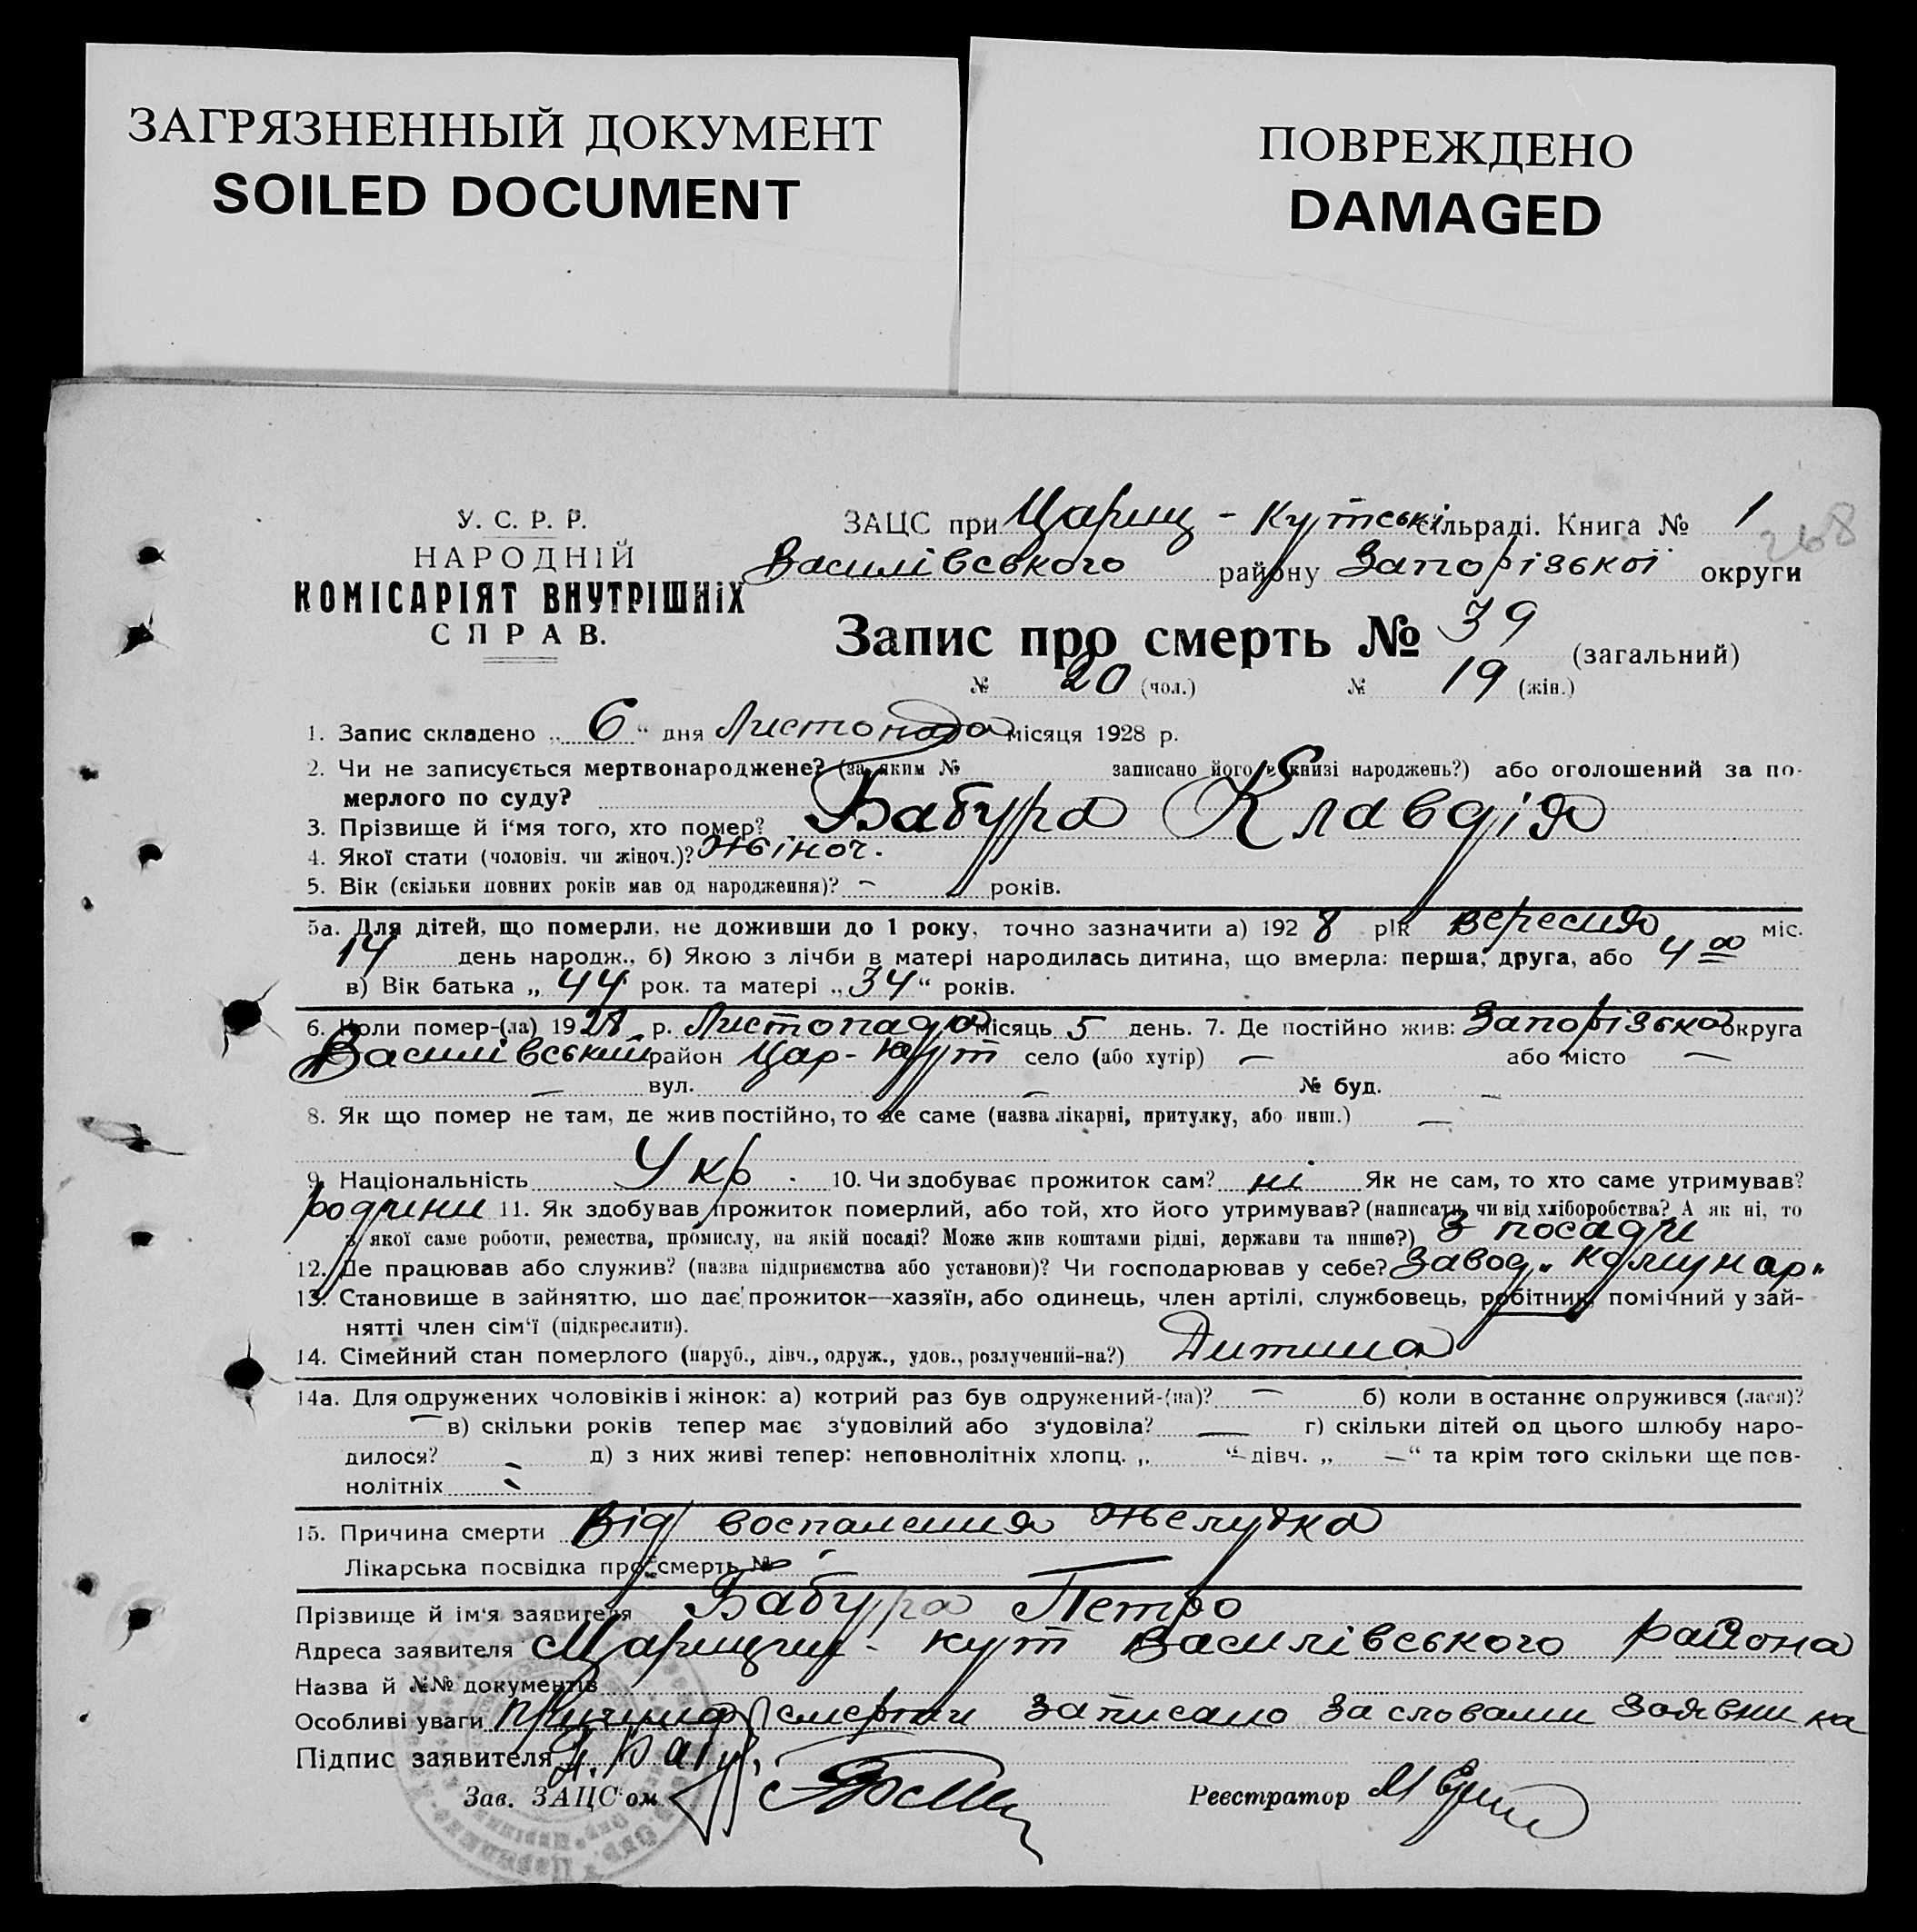 ЗАГРЯЗНЕННЫЙ ДОКУМЕНТ
SOILED DOCUMENT
ПОВРЕЖДЕНО
DAMAGED
У. С. Р. Р.
НАРОДНІЙ
КОМІСАРІЯТ ВНУТРІШНІХ
СПРАВ.
ЗАЦС при Цариц - Кутській сільраді. Книга № 1
268
Василівського району Запорізької округи
Запис про смерть № 39 (загальний)
№ 20 (чол.) № 19 (жін.)
1. Запис складено „ 6 “ дня Листопада місяця 1928 р.
2. Чи не записується мертвонароджене? (за яким № записано його в книзі народжень?) або оголошений за по-
мерлого по суду?
3. Прізвище й і‘мя того, хто помер? Бабура Клавдія
4. Якої стати (чоловіч. чи жіноч.)? Жіноч.
5. Вік (скільки повних років мав од народження)? – років.
5а. Для дітей, що померли, не доживши до 1 року, точно зазначити а) 1928 рік вересня міс.
14 день народж., б) Якою з лічби в матері народилась дитина, що вмерла: перша, друга, або 4
в) Вік батька „ 44 рок. та матері „ 34 “ років.
6. Коли помер-(ла) 1928 р. Листопада місяць 5 день. 7. Де постійно жив: Запорізька округа
Василівський район Цар-Кут село (або хутір) – або місто –
– вул. – № буд. –
8. Як що помер не там, де жив постійно, то де саме (назва лікарні, притулку, або инш.) –
9. Національність Укр. 10. Чи здобуває прожиток сам? ні Як не сам, то хто саме утримував?
родини 11. Як здобував прожиток померлий, або той, хто його утримував? (написати, чи від хліборобства? А як ні, то
з якої саме роботи, ремества, промислу, на якій посаді? Може жив коштами рідні, держави та инше?) З посади
12. Де працював або служив? (назва підприємства або установи)? Чи господарював у себе? Завод „Комунар“
13. Становище в зайняттю, що дає прожиток—хазяїн, або одинець, член артілі, службовець, робітник, помічний у зай-
нятті член сім‘ї (підкреслити).
14. Сімейний стан померлого (паруб., дівч., одруж., удов., розлучений-на?) Дитина
14а. Для одружених чоловіків і жінок: а) котрий раз був одружений-(на)? – б) коли в останнє одружився (лася)?
– в) скільки років тепер має з‘удовілий або з‘удовіла? – г) скільки дітей од цього шлюбу наро-
дилося? – д) з них живі тепер: неповнолітніх хлопц. „ – “ дівч. „ – “ та крім того скільки ще пов-
нолітніх –
15. Причина смерти Від воспаления желудка
Лікарська посвідка про смерть № –
Прізвище й ім‘я заявителя Бабура Петро
Адреса заявителя Царицин-кут Василівського района
Назва й №№ документів
Особливі уваги Причина смерти записано за словами заявника
Підпис заявителя
Зав. ЗАЦС‘ом
Реєстратор